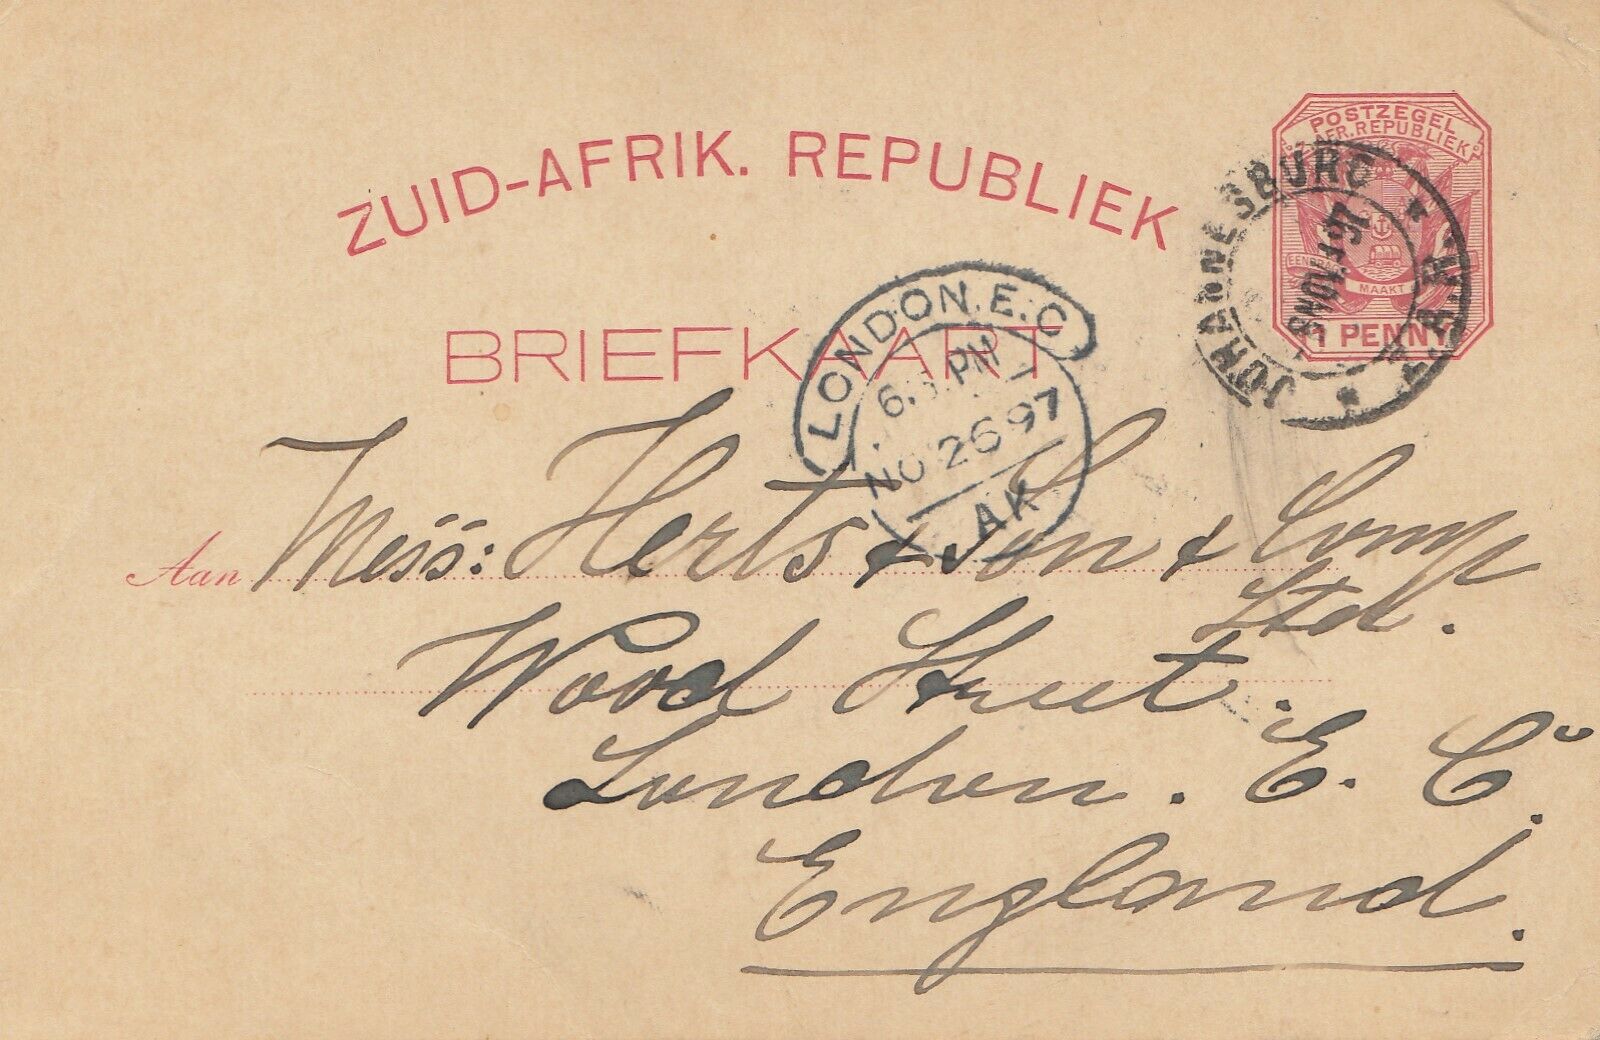 ZUID-AFRIK. REPUBLIEK
POSTZEGEL
Z. AFR. REPUBLIEK
EENDRA MAAKT
1 PENNY
JOHANNESBURG
NOV 97
BRIEFKAART
LONDON. E. C
PM
NO 26 97
AK
Aan Mess: Herts & Son & Comp
Ltd.
Wood Street.
London. E. C.
England.